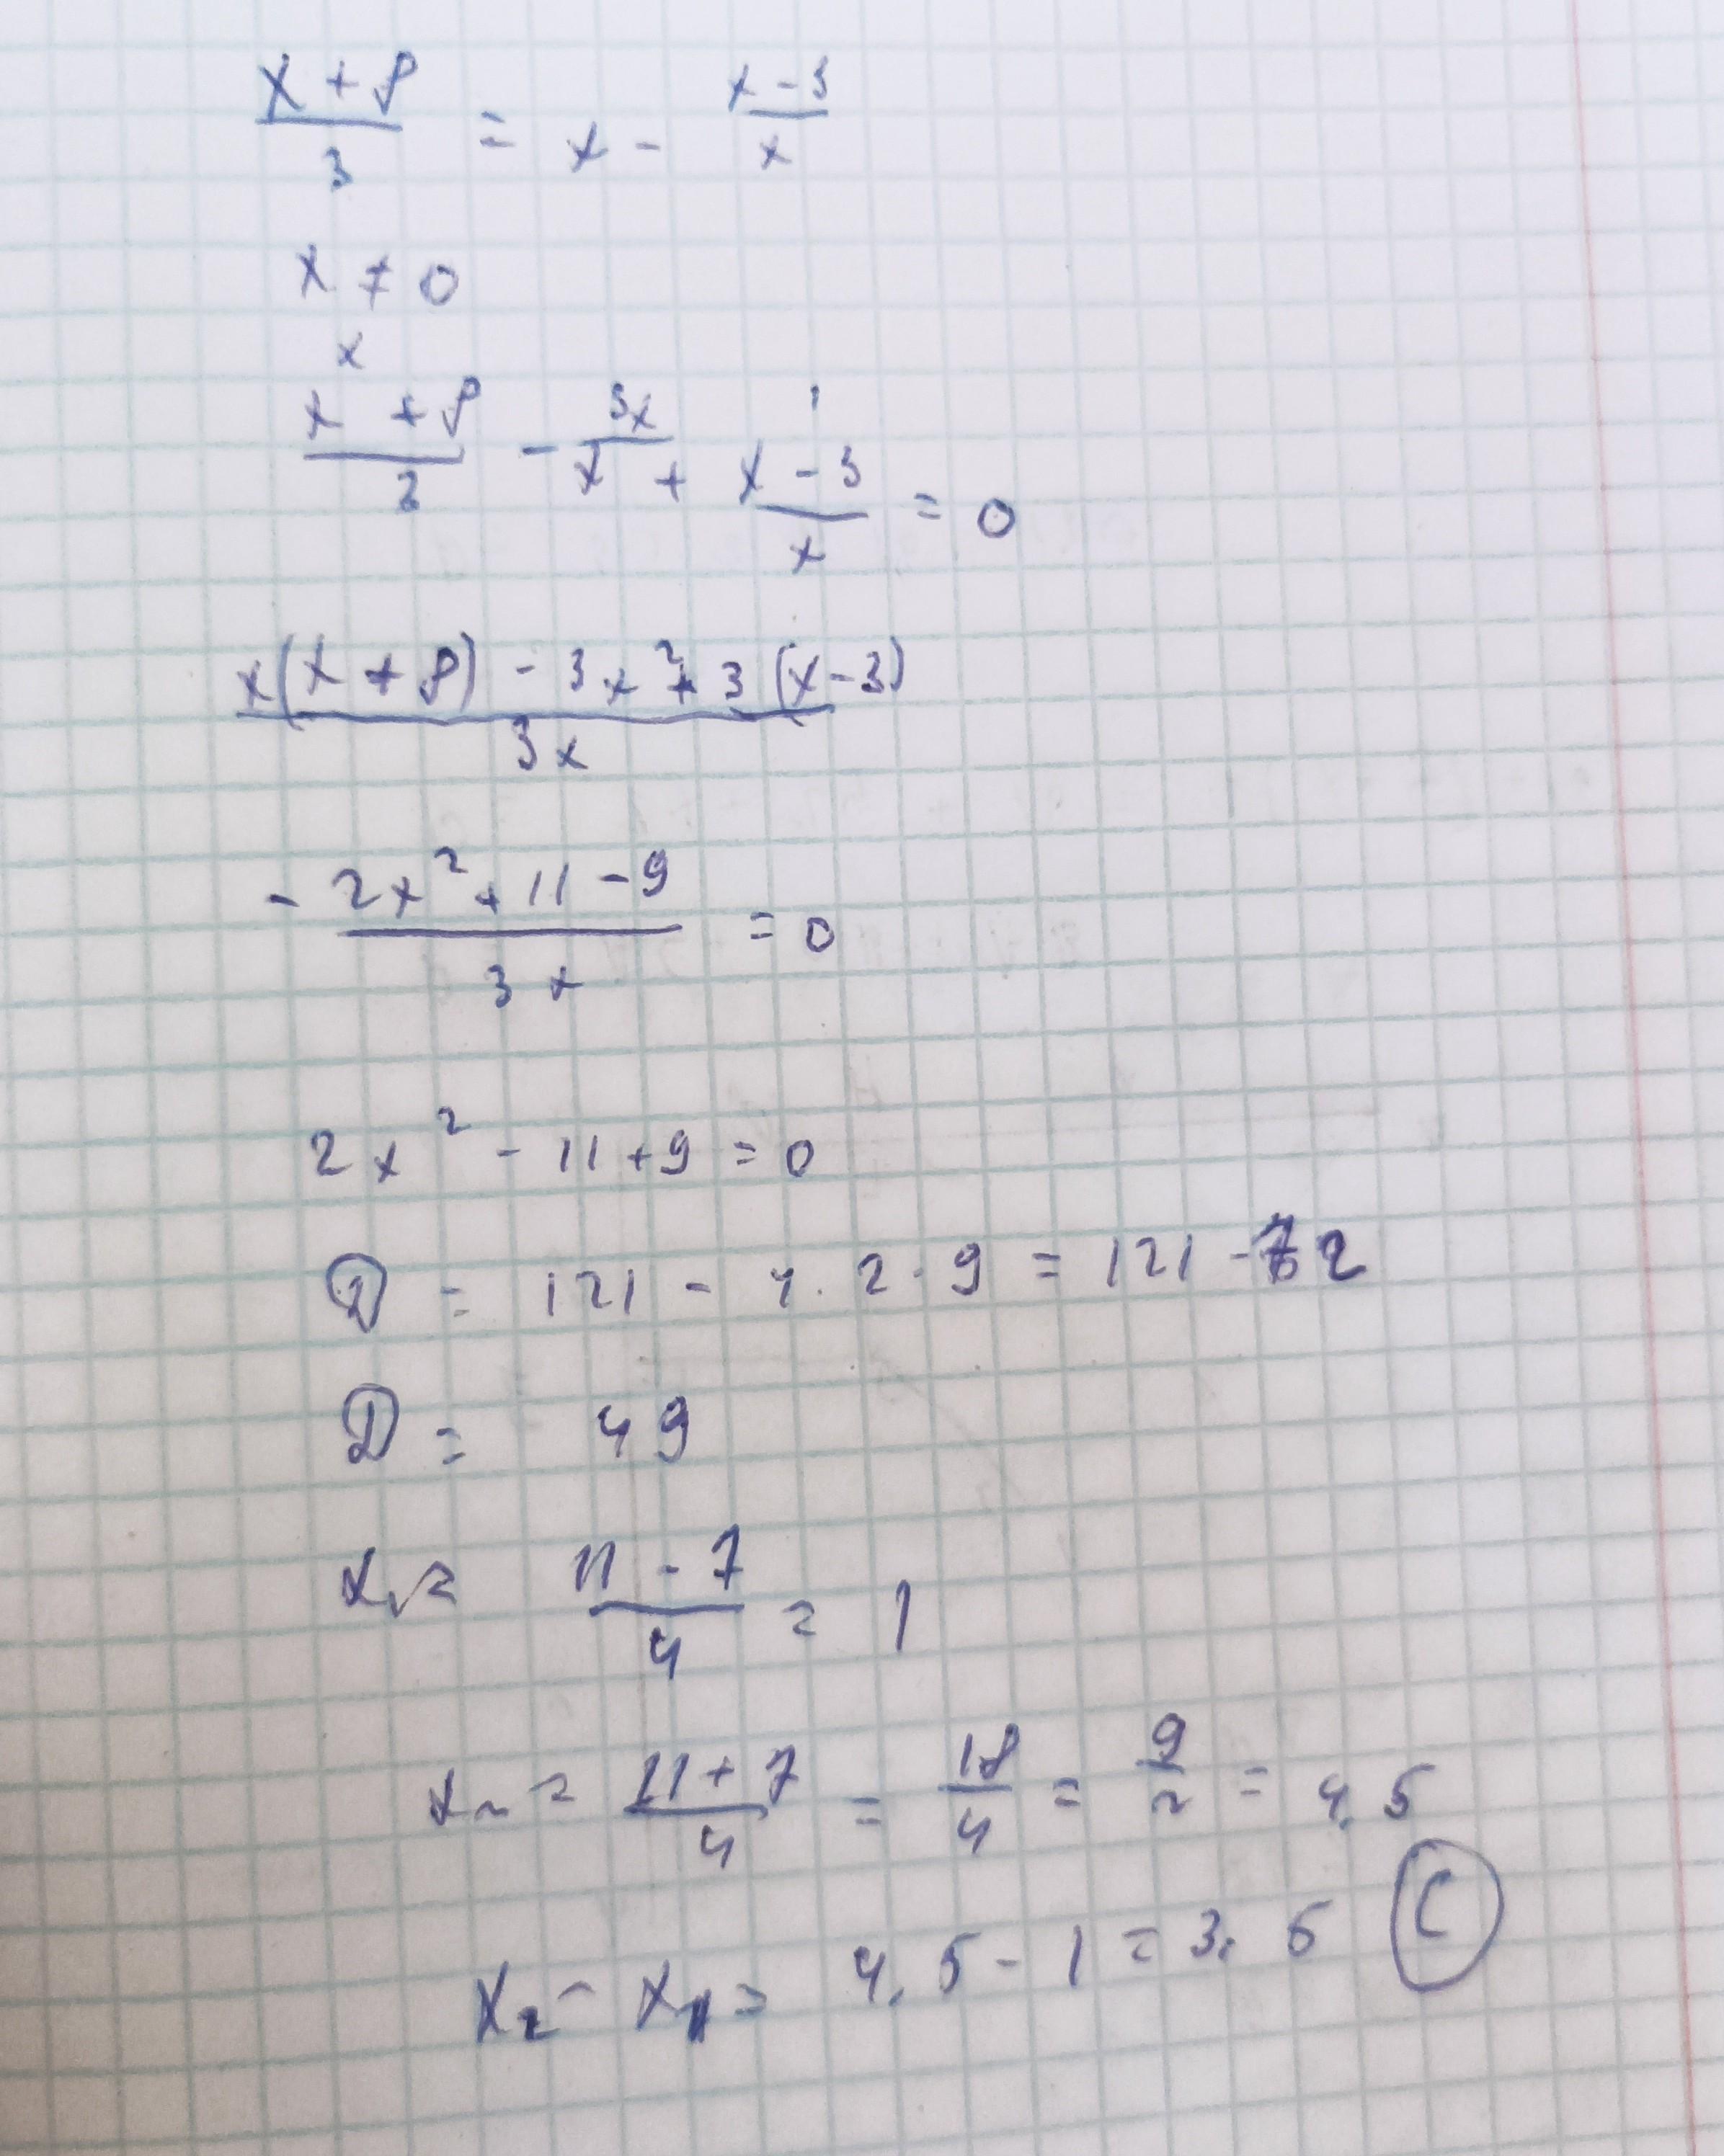 x + 8 / 3 = x - x - 3 / x
x ≠ 0
x
x + 8 / 3 - 3x / x + 1 x - 3 / x = 0
x(x + 8) - 3x² + 3(x - 3) / 3x
- 2x² + 11 - 9 / 3x = 0
2x² - 11 + 9 = 0
D = 121 - 4 · 2 · 9 = 121 - 72
D = 49
x₁ = 11 - 7 / 4 = 1
x₂ = 11 + 7 / 4 = 18 / 4 = 9 / 2 = 4,5
x₂ - x₁ = 4,5 - 1 = 3,5 C